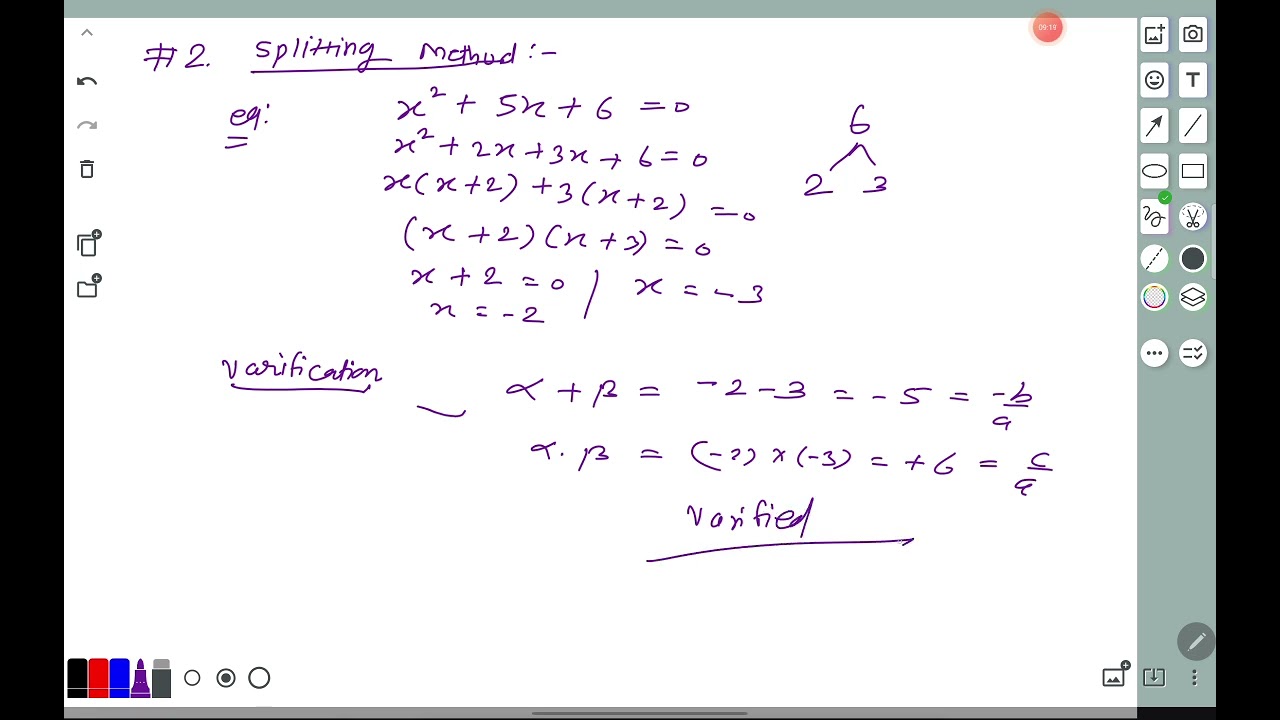 09:19
#2. Splitting Method :-
eg: x² + 5x + 6 = 0
x² + 2x + 3x + 6 = 0
x(x+2) + 3(x+2) = 0
(x+2)(x+3) = 0
x + 2 = 0 / x = -3
x = -2
6
2 3
Varification
α + β = -2 - 3 = -5 = -b/a
α · β = (-2) × (-3) = +6 = c/a
Varified
T